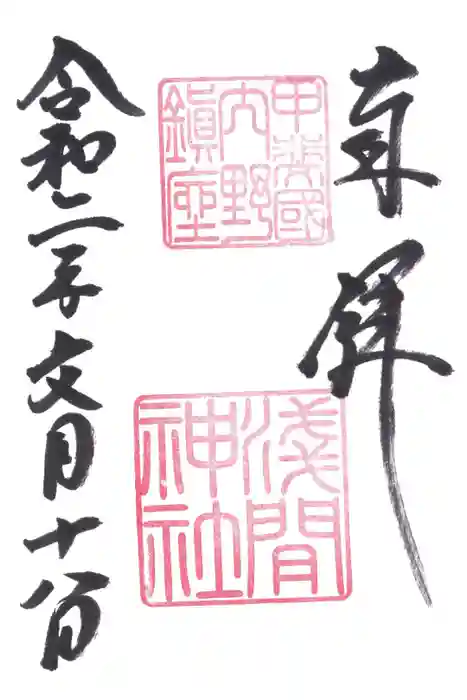 奉拝
甲斐國
内野
鎮座
淺間
神社
令和二年文月十八日